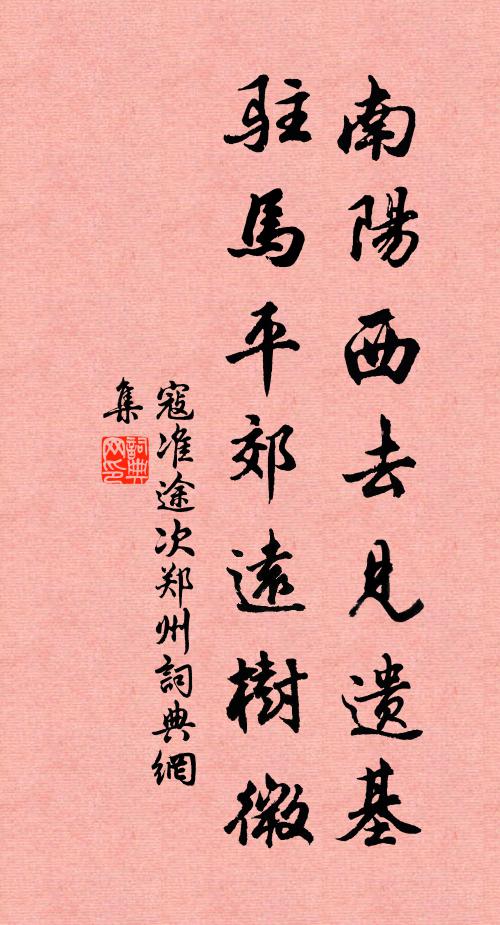 南陽西去見遺基
駐馬平郊遠樹微
寇准途次郑州詞典網
集
詞典網印